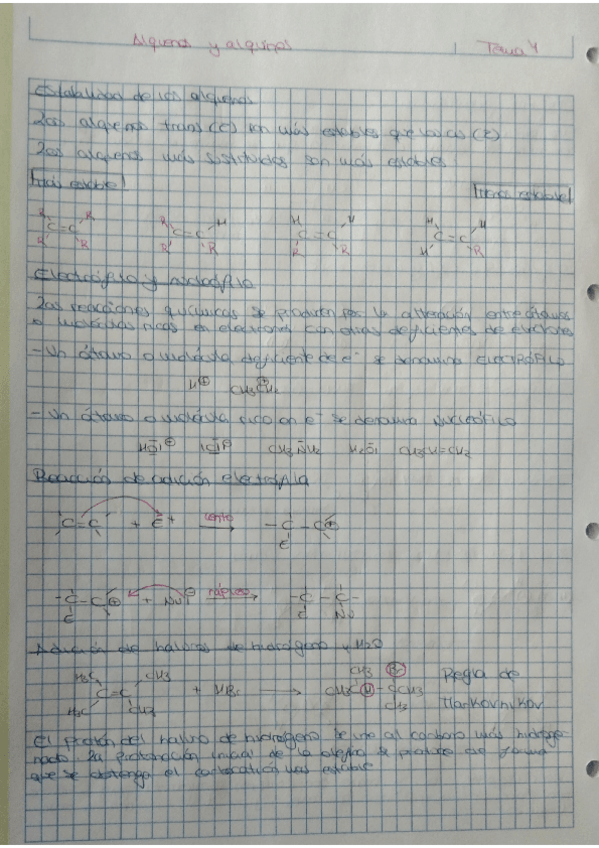 Alquenos y alquinos
Tema 4
Estabilidad de los alquenos
Los alquenos trans (E) son más estables que los cis (Z)
Los alquenos más sustituidos son más estables
Más estable
Menos estable
R R H H H H
C=C C=C C=C C=C
R R R R R R H R
Electrófilo y nucleófilo
Las reacciones químicas se producen por la atracción entre átomos
o moléculas ricos en electrones con otras deficientes de electrones
- Un átomo o molécula deficiente de e⁻ se denomina ELECTRÓFILO
H⊕ CH3CH2
- Un átomo o molécula rico en e⁻ se denomina NUCLEÓFILO
CH3NH2 H2O
Reacción de adición electrófila
C=C + E+ lento -C-C⊕
E
-C-C⊕ + Nu⊖ rápido -C-C-
E E Nu
Adición de haluros de hidrógeno y H2O
H3C CH3 CH3 Br Regla de
C=C + HBr CH3C H - CCH3
H3C CH3 CH3 Markovnikov
El protón del haluro de hidrógeno se une al carbono más hidroge-
nado. La protonación inicial de la olefina se produce de forma
que se obtenga el carbocatión más estable